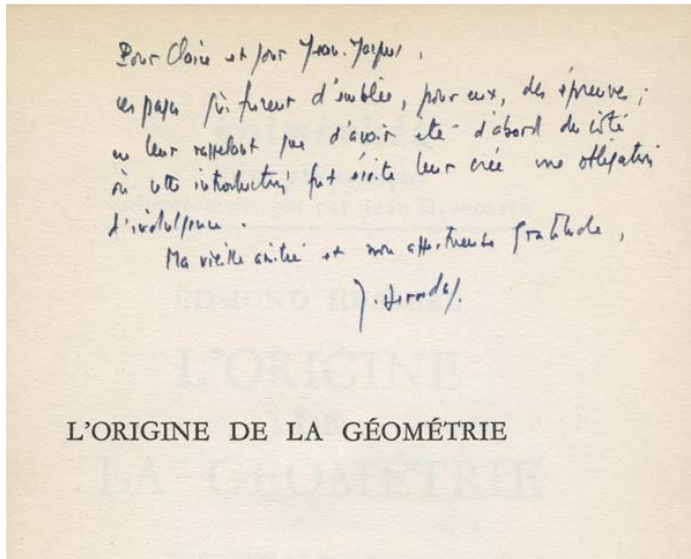 Pour Claire et pour Jean-Jacques,
ces pages qui furent d'emblée, pour eux, des épreuves ;
en leur rappelant que d'avoir été d'abord du côté
où cette introduction fut écrite leur crée une obligation
d'indulgence.
Ma vieille amitié et mon affectueuse gratitude,
J. Derrida
EDMUND HUSSERL
L'ORIGINE
DE
L'ORIGINE DE LA GÉOMÉTRIE
LA GÉOMÉTRIE